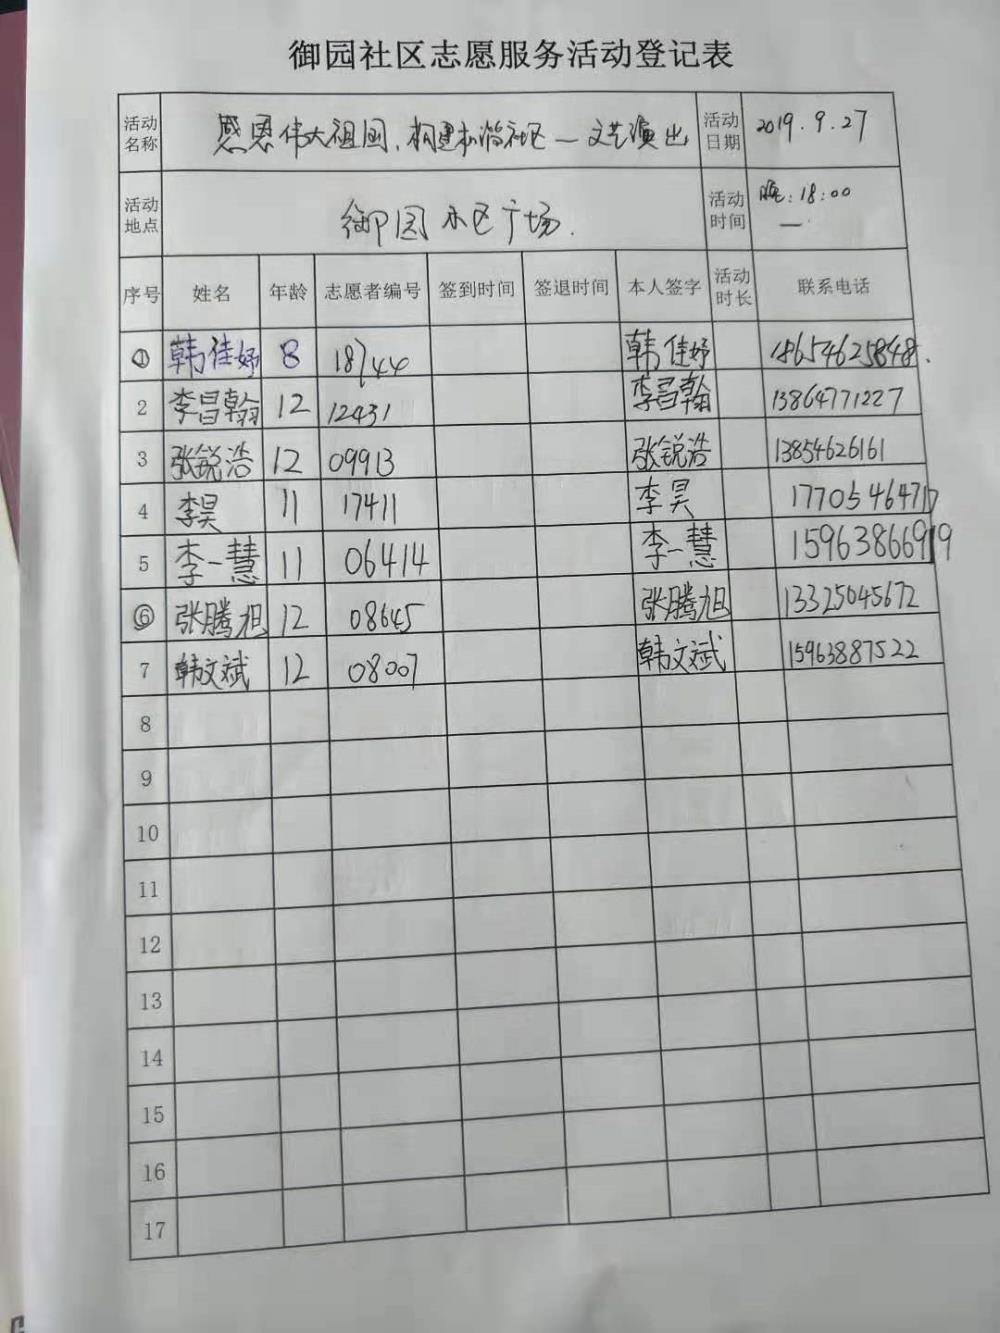 御园社区志愿服务活动登记表
活动名称 感恩伟大祖国,构建和谐社区一文艺演出 活动日期 2019.9.27
活动地点 御园小区广场. 活动时间 晚:18:00 —
序号 姓名 年龄 志愿者编号 签到时间 签退时间 本人签字 活动时长 联系电话
① 韩佳妤 8 18744 韩佳妤 18654625848.
2 李昌翰 12 12431 李昌翰 13864771227
3 张锐浩 12 09913 张锐浩 13854626161
4 李昊 11 17411 李昊
5 李一慧 11 06414 李一慧
⑥ 张腾旭 12 08645 张腾旭 13325045672
7 韩文斌 12 08007 韩文斌 15963887522
8
9
10
11
12
13
14
15
16
17